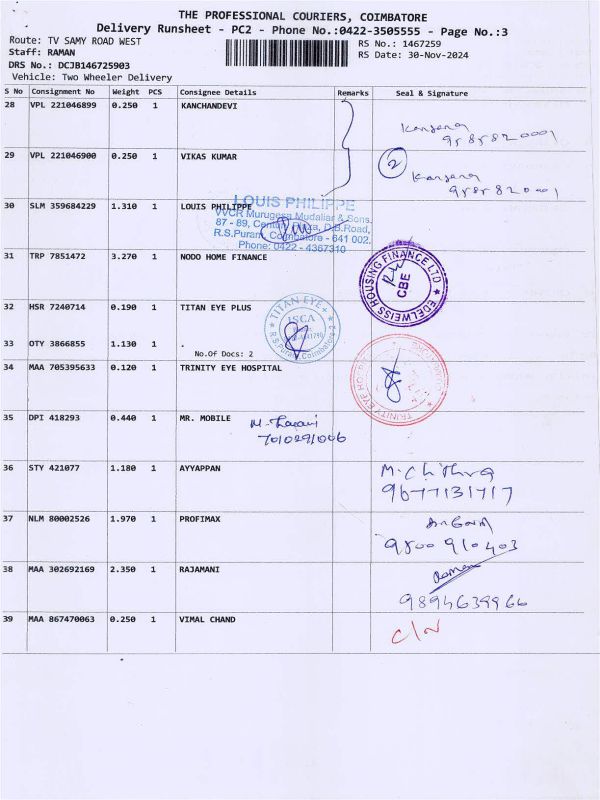 THE PROFESSIONAL COURIERS, COIMBATORE
Delivery Runsheet - PC2 - Phone No.:0422-3505555 - Page No.:3
Route: TV SAMY ROAD WEST
RS No.: 1467259
Staff: RAMAN
RS Date: 30-Nov-2024
DRS No.: DCJB146725903
Vehicle: Two Wheeler Delivery
S No Consignment No Weight PCS Consignee Details Remarks Seal & Signature
28 VPL 221046899 0.250 1 KANCHANDEVI
29 VPL 221046900 0.250 1 VIKAS KUMAR
2
30 SLM 359684229 1.310 1 LOUIS PHILIPPE
LOUIS PHILIPPE
VVCR Murugesa Mudaliar & Sons.
87 - 89, Century Plaza, D.B.Road,
R.S.Puram, Coimbatore - 641 002.
Phone: 0422 - 4367310
31 TRP 7851472 3.270 1 NODO HOME FINANCE
EDELWEISS HOUSING FINANCE LTD
CBE
32 HSR 7240714 0.190 1 TITAN EYE PLUS
TITAN EYE+
R.S.Puram, Coimbatore-2
33 OTY 3866855 1.130 1 .
No.Of Docs: 2
34 MAA 705395633 0.120 1 TRINITY EYE HOSPITAL
TRINITY EYE HOSPITAL
35 DPI 418293 0.440 1 MR. MOBILE
36 STY 421077 1.180 1 AYYAPPAN
M. Chithra
9677131717
37 NLM 80002526 1.970 1 PROFIMAX
98009 10403
38 MAA 302692169 2.350 1 RAJAMANI
Raman
9894639966
39 MAA 867470063 0.250 1 VIMAL CHAND
C/N